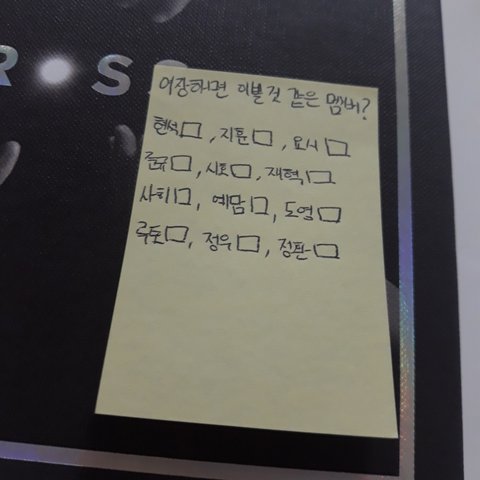 R S
여장하면 이쁠것 같은 멤버?
현석□, 지훈□, 요시□
준규□, 시토□, 재혁□
사히□, 예담□, 도영□
루토□, 정우□, 정환□